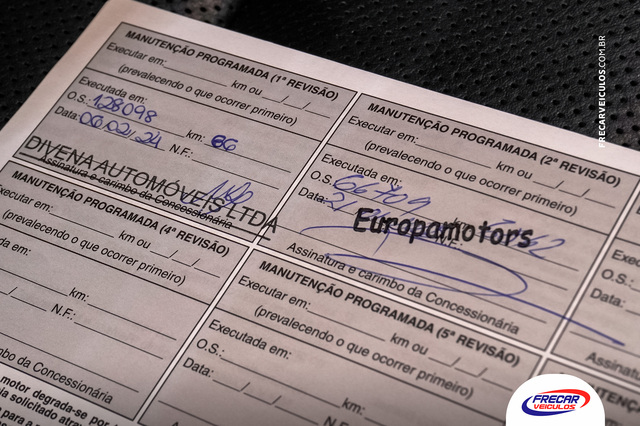 MANUTENÇÃO PROGRAMADA (1ª REVISÃO)
Executar em: km ou __/__/__
(prevalecendo o que ocorrer primeiro)
Executada em:
O.S.: 128098
Data: 06/02/24 km: 66
N.F.:
DIVENA AUTOMÓVEIS LTDA
Assinatura e carimbo da Concessionária
MANUTENÇÃO PROGRAMADA (2ª REVISÃO)
Executar em: km ou __/__/__
(prevalecendo o que ocorrer primeiro)
Executada em:
O.S.: 66709
Data:
Europamotors
Assinatura e carimbo da Concessionária
MANUTENÇÃO PROGRAMADA (4ª REVISÃO)
km ou __/__/__
(prevalecendo o que ocorrer primeiro)
km:
N.F.:
Concessionária
motor degrada-se por
MANUTENÇÃO PROGRAMADA (5ª REVISÃO)
Executar em: km ou __/__/__
(prevalecendo o que ocorrer primeiro)
Executada em:
O.S.:
Data: km:
N.F.:
O.S.:
Data:
FRECARVEICULOS.COM.BR
FRECAR
VEICULOS